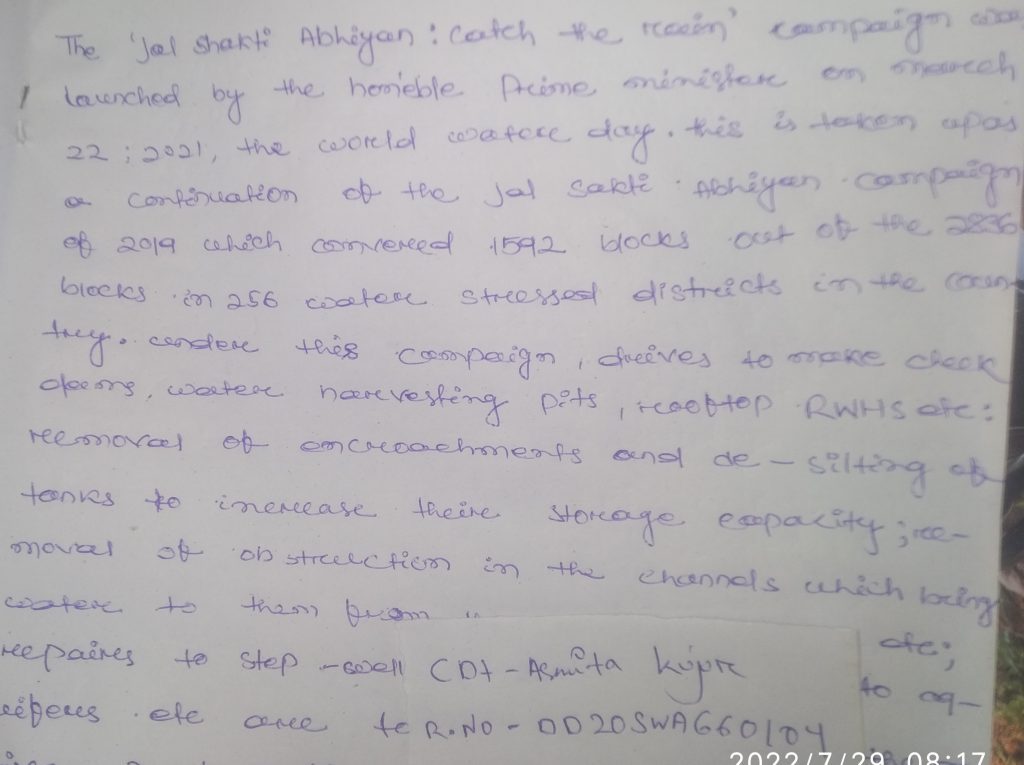 The 'Jal Shakti Abhiyan : Catch the rain' campaign was
launched by the hon'eble Prime minister on march
22 ; 2021, the world water day. this is taken upas
a continuation of the Jal Sakti Abhiyan campaign
of 2019 which convered 1592 blocks out of the 2836
blocks in 256 water stressed districts in the coun-
try. under this campaign, drives to make check
dams, water harvesting pits, rooftop RWHS etc:
removal of encroachments and de-silting of
tanks to increase their storage capacity ; re-
moval of obstruction in the channels which bring
water to them from
repaires to step-well etc;
to aq-
etc are
CDt - Asmita Kujur
R.NO - OD20SWA660104
2022/7/29 08:17